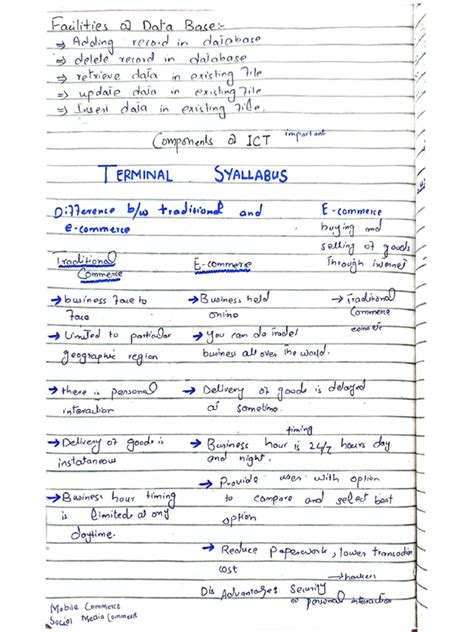 Facilities of Data Base:-
⇒ Adding record in database
⇒ delete record in database
⇒ retrieve data in existing file
⇒ update data in existing file
⇒ Insert data in existing file.
Components of ICT important
TERMINAL SYALLABUS
Difference b/w traditional and
e-commerce
E-commerce
buying and
selling of goods
through internet
Traditional
Commerce
→ business face to
face
→ Limited to particular
geographic region
→ there is personal
interaction
→ Delivery of goods is
instataneous
→ Business hour timing
is limited at only
daytime.
E-commerce
→ Business held
→ You can do
business all over the world.
→ Delivery of goods is delayed
at sometime.
timing
→ Business hour is 24/7 hours day
and night.
→ Provide user with option
to compare and select best
option
→ Reduce paperwork, lower transaction
cost
→ hackers
DisAdvantages Security
personal interaction
→ Traditional
Commerce
Mobile Commerce
Social Media Commerce